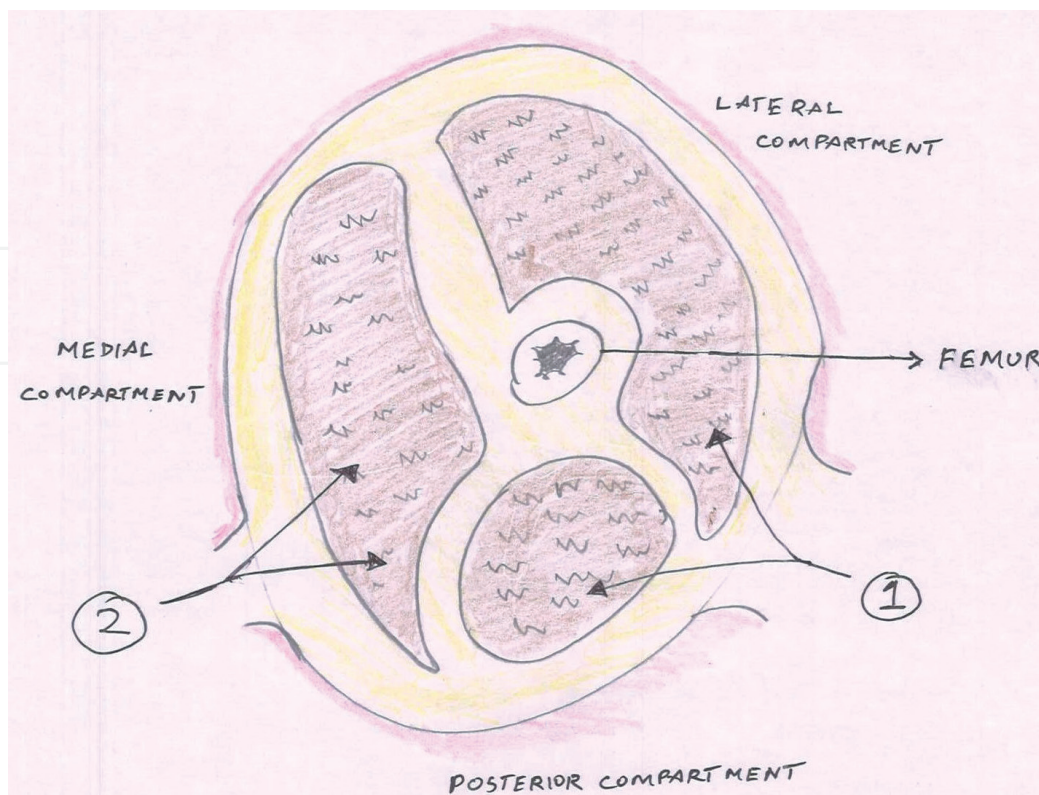 LATERAL
COMPARTMENT
MEDIAL
COMPARTMENT
FEMUR
2
1
POSTERIOR COMPARTMENT